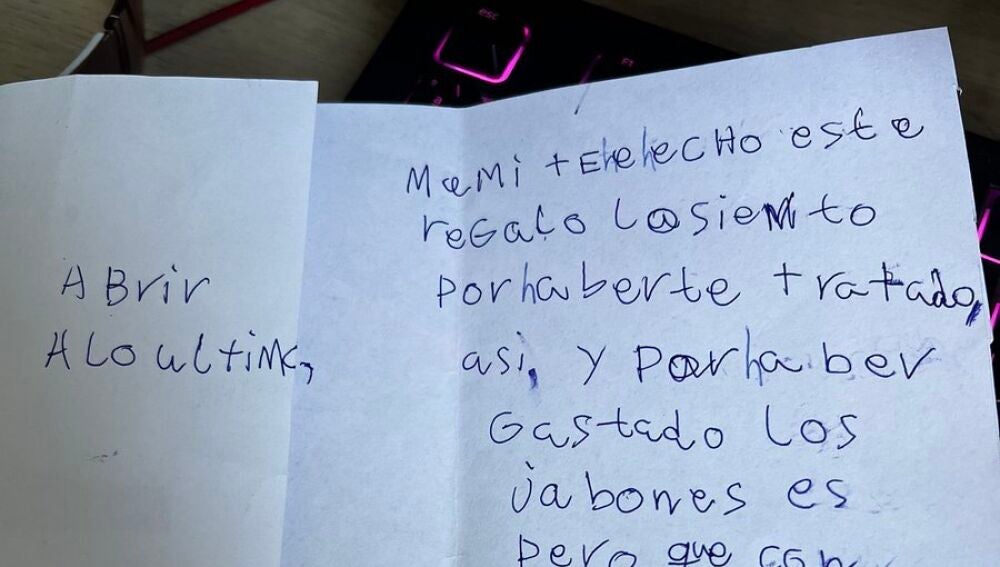 esc
F1
ABrir
ALO ultimo,
MaMi tEhehecHo este
reGalo Lo siento
por haberte tratado,
asi, y por haber
Gastado los
jabones es
pero que con